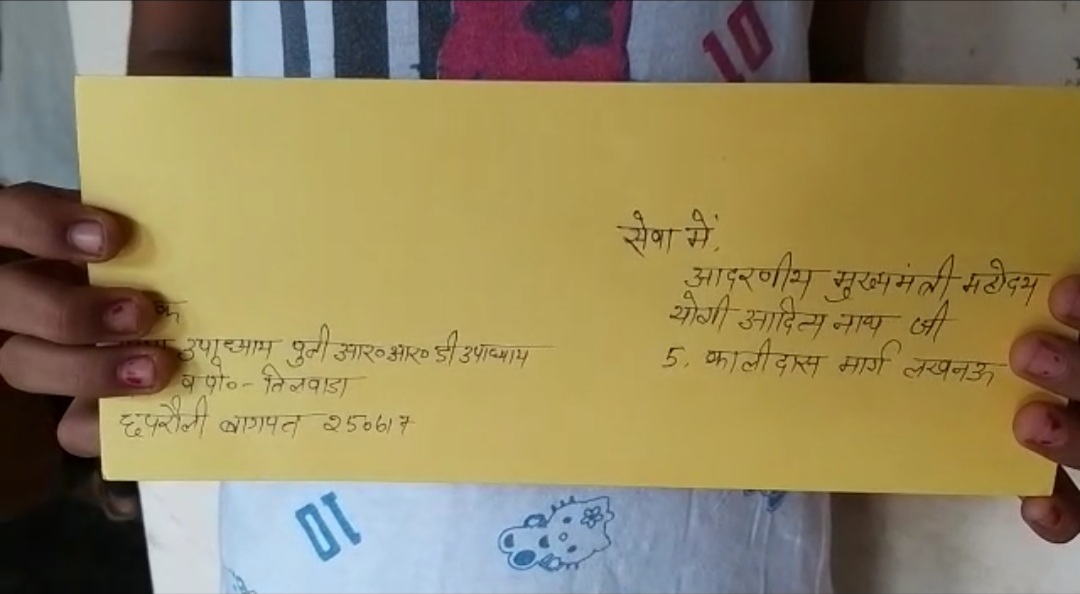 सेवा में,
आदरणीय मुख्यमंत्री महोदय
योगी आदित्य नाथ जी
5, कालीदास मार्ग लखनऊ
उपाध्याय पुत्री आर० आर० डी उपाध्याय
व पो०- तिलवाडा
छपरौली बागपत 250617
10
10